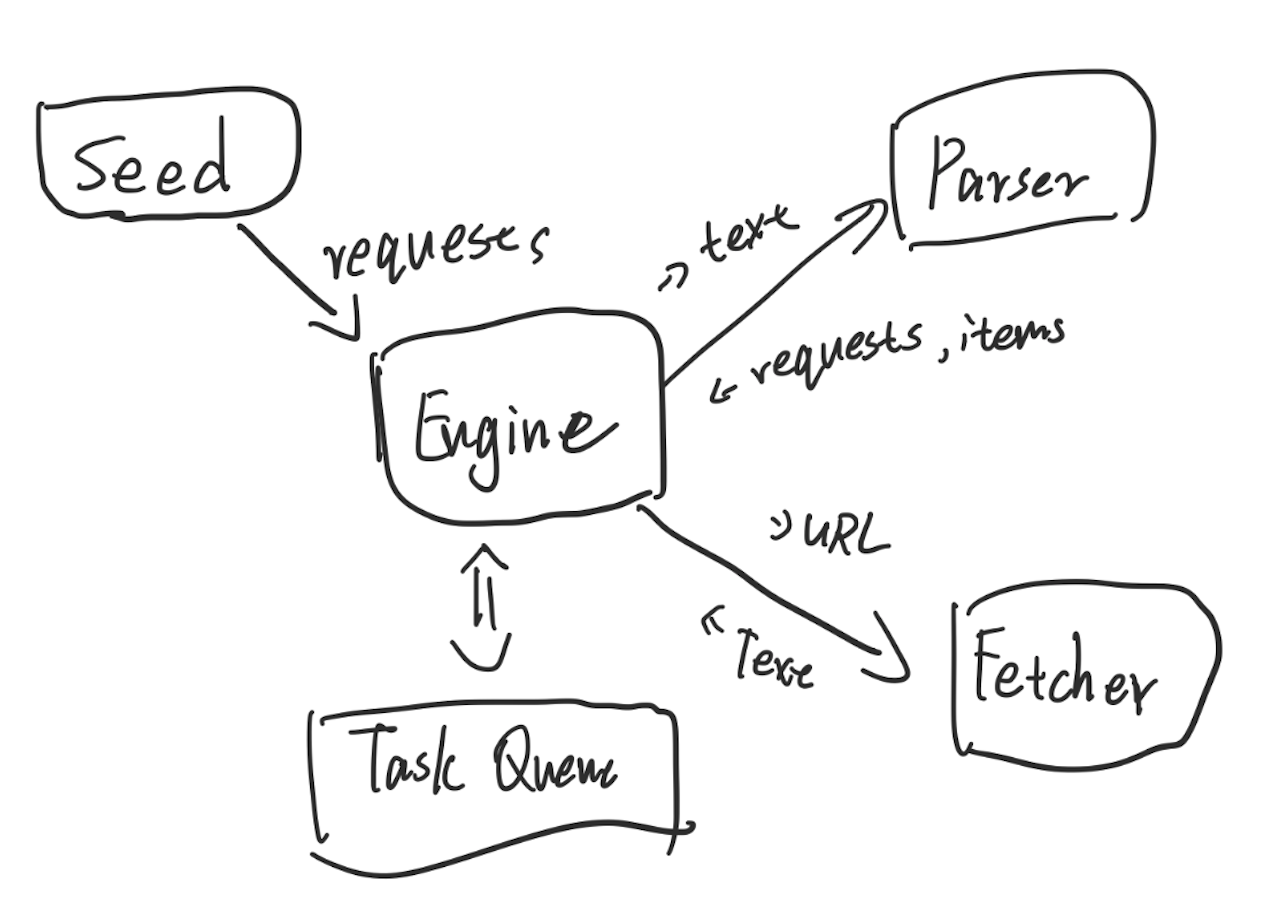 Seed
Parser
requests
text
requests, items
Engine
URL
Text
Fetcher
Task Queue